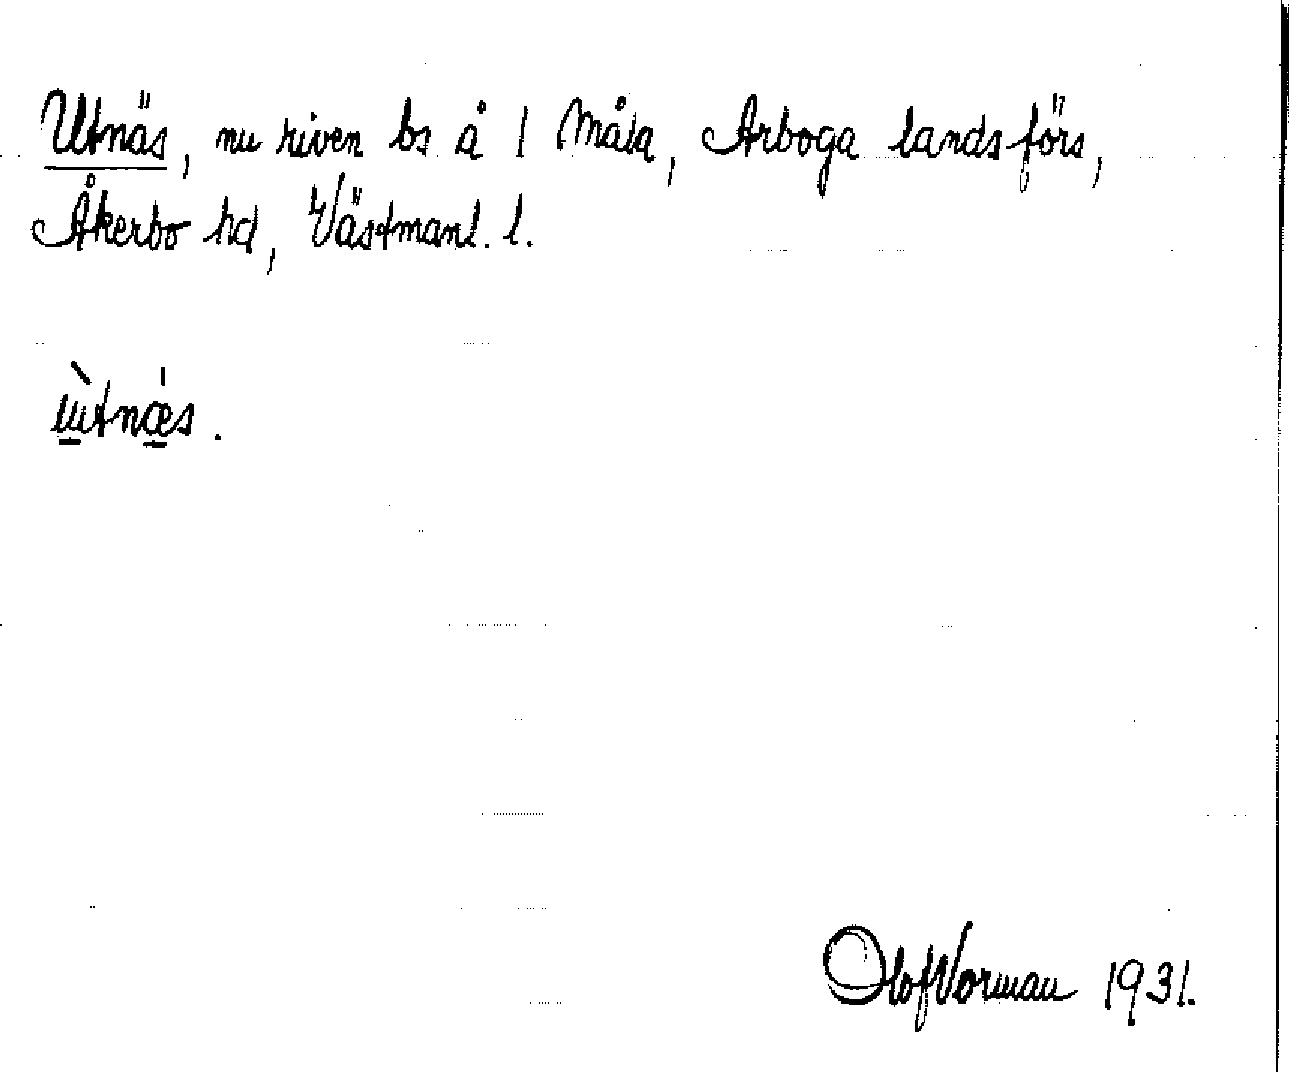 Utnäs, nu riven bs å 1 Måla, Arboga landsförs,
Åkerbo hd, Västmanl. l.
ùtnæ̀s.
Olof Vorman 1931.